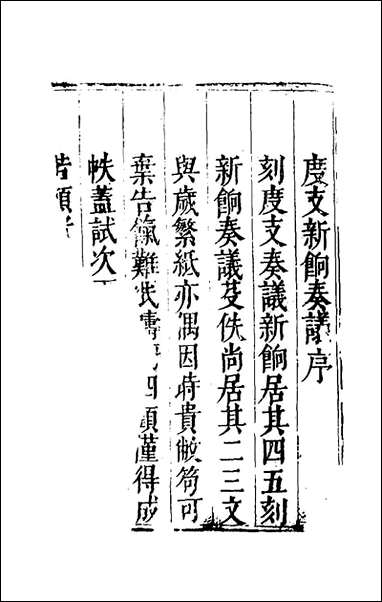 度支新餉奏議序
刻度支奏議新餉居其四五刻
新餉奏議芟佚尚居其二三文
與歲繁紙亦偶因時貴敝笱可
棄告餼難 四頭僅得成
帙蓋試次
昔